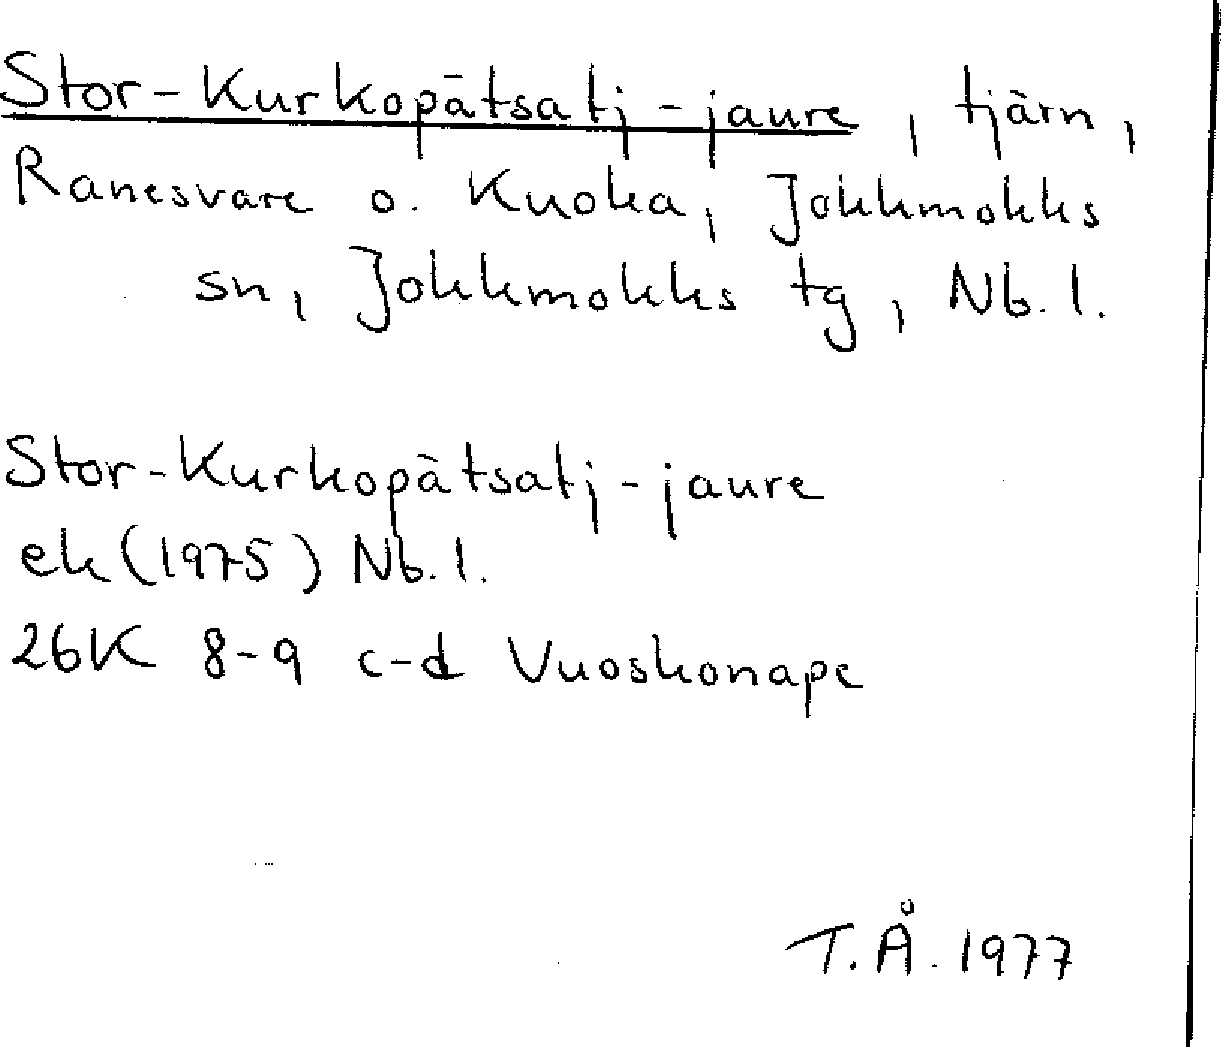 Stor-Kurkopätsatj-jaure, tjärn,
Ranesvare o. Kuoka, Jokkmokks
sn, Jokkmokks tg, Nb. l.
Stor-Kurkopätsatj-jaure
ek (1975) Nb. l.
26K 8-9 c-d Vuoskonape
T. Å. 1977